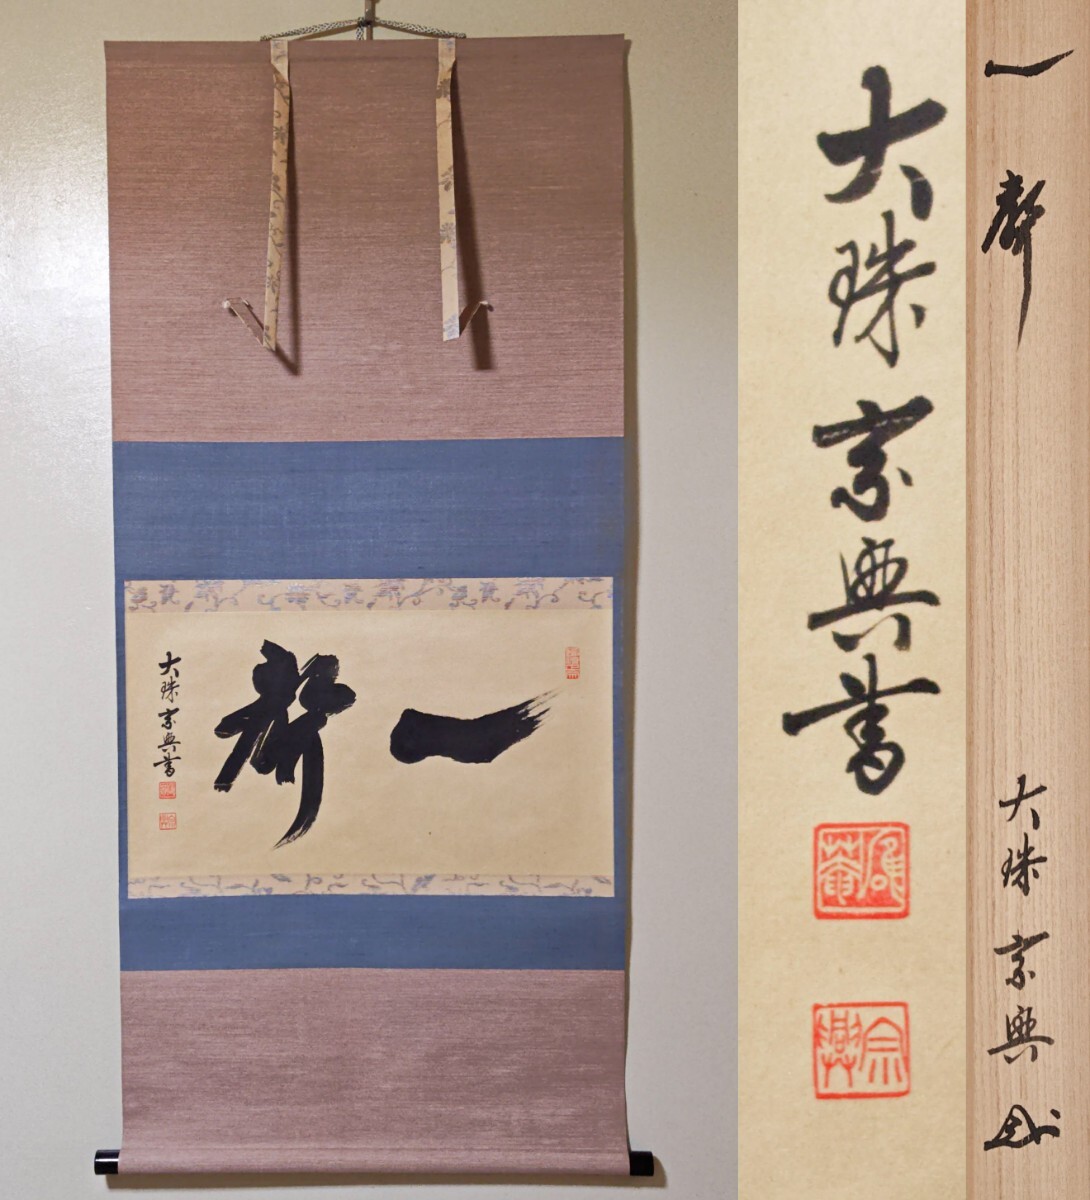 一聲
大珠宗興書
大珠宗興書
宗興
一聲
大珠宗興